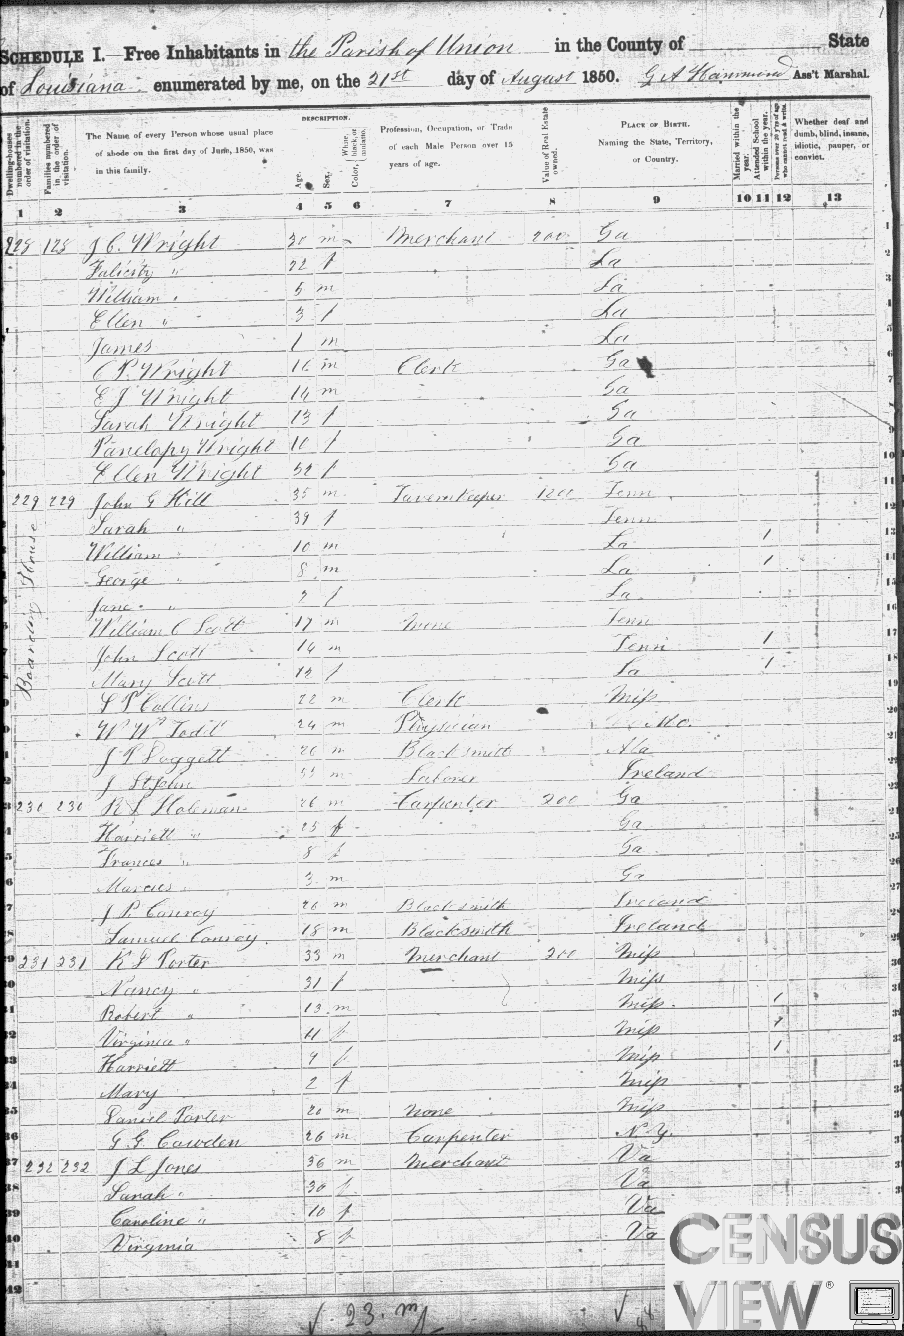 SCHEDULE I. Free Inhabitants in the Parish of Union in the County of State
of Louisiana enumerated by me, on the 21st day of August 1850. G A Hammond Ass't Marshal.
Dwelling-houses numbered in the order of visitation.
Families numbered in the order of visitation.
The Name of every Person whose usual place of abode on the first day of June, 1850, was in this family.
DESCRIPTION.
Age.
Sex.
Color, White, black, or mulatto.
Profession, Occupation, or Trade of each Male Person over 15 years of age.
Value of Real Estate owned.
PLACE OF BIRTH. Naming the State, Territory, or Country.
Married within the year.
Attended School within the year.
Persons over 20 y'rs of age who cannot read & write.
Whether deaf and dumb, blind, insane, idiotic, pauper, or convict.
1 2 3 4 5 6 7 8 9 10 11 12 13
228 128 J C Wright 30 m Merchant 200 Ga
Falicity " 22 f La
William " 5 m La
Ellen " 3 f La
James 1 m La
C P Wright 16 m Clerk Ga
E J Wright 14 m Ga
Sarah Wright 13 f Ga
Panelopy Wright 10 f Ga
Ellen Wright 52 f Ga
229 229 John G Hill 35 m Tavern Keeper 1200 Tenn
Sarah " 39 f Tenn
William " 10 m La 1
George " 8 m La 1
Jane " f La
William C Scott 17 m None Tenn
John Scott 14 m Tenn 1
Mary Scott 12 f La 1
Boarding House
Collins 22 m Clerk Miss
Todd 24 m Physician Mo.
J Doggett 20 m Blacksmith Ala
J St John m Laborer Ireland
230 230 R L Holeman 26 m Carpenter 200 Ga
Harriett " 25 f Ga
Frances " 8 f Ga
Marcus " 3 m Ga
J P Conroy 26 m Blacksmith Ireland
Samuel Conroy 18 m Blacksmith Ireland
231 231 Porter 33 m Merchant 200 Miss
Nancy " 31 f Miss
Robert " 13 m Miss 1
Virginia " 11 f Miss 1
Harriett 9 f Miss 1
Mary 2 f Miss
Daniel Porter 20 m None Miss
G. G. Cowden 26 m Carpenter N.Y.
232 232 J L Jones 36 m Merchant Va
Sarah " 30 f Va
Caroline " 10 f Va
Virginia 8 f Va
23 m
CENSUS
VIEW®